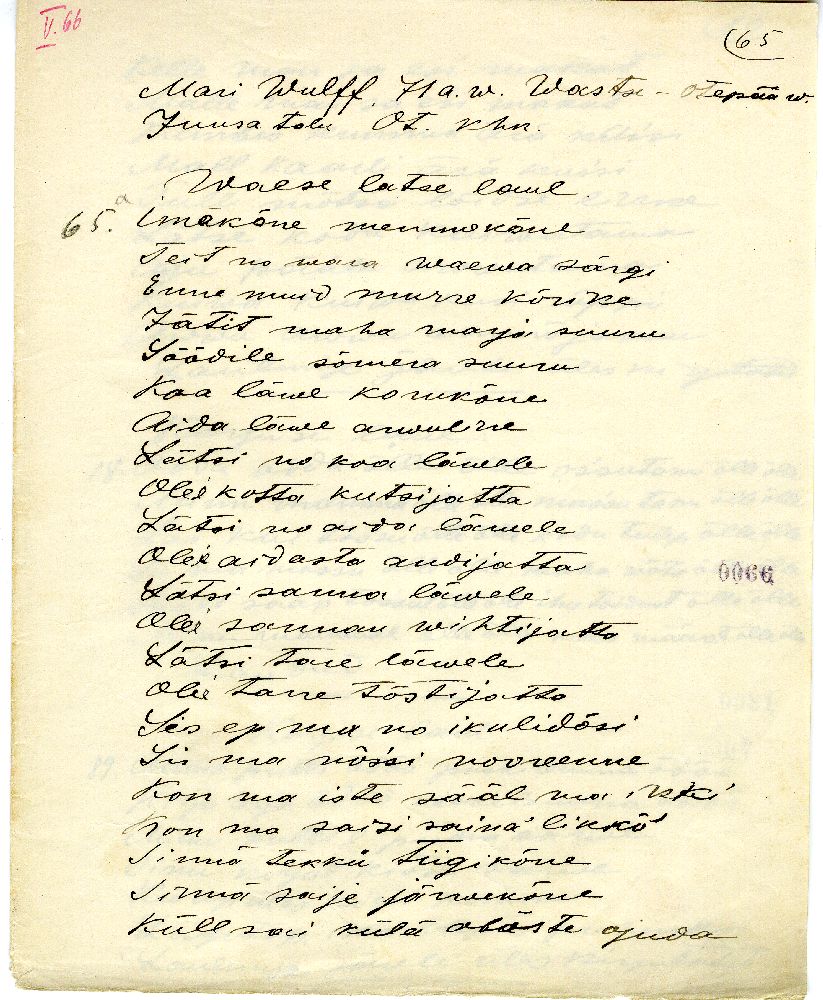 V. 66
(65
Mari Wulff, 71 a. w. Wasta-Otepää w.
Juusa talu Ot. khk.
Waese latse laul
65.a Imäkõne mennukõne
Teit no wara waewa särgi
Enne muid murre kõrike
Jätit maha marja suuru
Söödile sõmera suuru
Kaa läwe kanukõne
Aida läwe arwuline
Lätsi no koa läwele
Olli kotta kutsijatta
Lätsi no aida läwele
Olli aidasta andijatta
0066
Lätsi sanna läwele
Olli sannan wihtijatta
Lätsi tare läwele
Olli tarre tõstijatta
Sis ep ma no ikulidõsi
Sis ma nõssi nooreenne
Kon ma iste sääl ma ikki
Kon ma saisi sainä likkõ
Sinnä tekkü tiigikõne
Sinnä saije järwekõne
Küll sai külä obäste ojuda